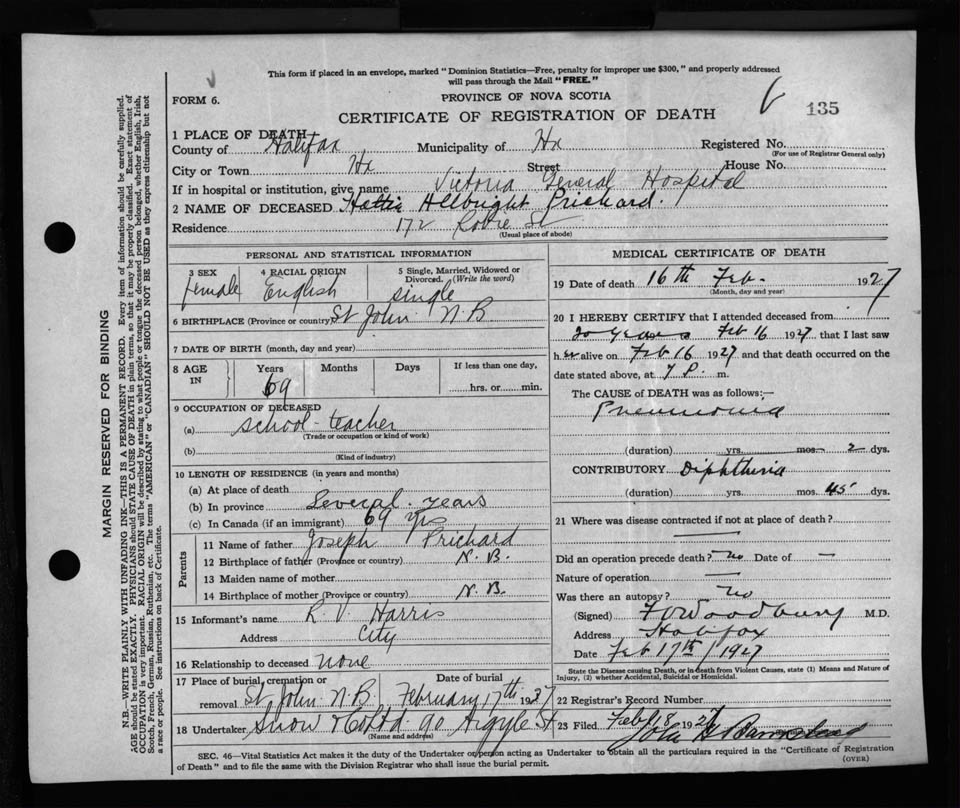 This form if placed in an envelope, marked "Dominion Statistics—Free, penalty for improper use $300," and properly addressed
will pass through the Mail "FREE."
FORM 6.
PROVINCE OF NOVA SCOTIA
135
CERTIFICATE OF REGISTRATION OF DEATH
1 PLACE OF DEATH
County of Halifax Municipality of Hx Registered No.
(For use of Registrar General only)
City or Town Hx Street House No.
If in hospital or institution, give name Victoria General Hospital
2 NAME OF DECEASED Hattie Allbright Prichard.
Residence 172 Robie St
(Usual place of abode)
PERSONAL AND STATISTICAL INFORMATION
3 SEX
female
4 RACIAL ORIGIN
English
5 Single, Married, Widowed or
Divorced. (Write the word)
single
6 BIRTHPLACE (Province or country) St John N.B
7 DATE OF BIRTH (month, day and year)
8 AGE IN
Years Months Days If less than one day,
69 hrs. or min.
9 OCCUPATION OF DECEASED
(a) School-teacher
(Trade or occupation or kind of work)
(b)
(Kind of industry)
10 LENGTH OF RESIDENCE (in years and months)
(a) At place of death
(b) In province Several years
(c) In Canada (if an immigrant) 69 yrs
Parents
11 Name of father Joseph Prichard
12 Birthplace of father (Province or country) N.B.
13 Maiden name of mother
14 Birthplace of mother (Province or country) N.B.
15 Informant's name R.V. Harris
Address City
16 Relationship to deceased none
17 Place of burial, cremation or Date of burial
removal St John N.B February 17th 1927
18 Undertaker Snow & Co Ltd 90 Argyle St
(Name and address)
MEDICAL CERTIFICATE OF DEATH
19 Date of death 16th Feb. 1927
(Month, day and year)
20 I HEREBY CERTIFY that I attended deceased from
20 years Feb 16 1927, that I last saw
h er alive on Feb 16 1927 and that death occurred on the
date stated above, at 7 P. m.
The CAUSE OF DEATH was as follows:—
Pneumonia
(duration) yrs. mos. 2 dys.
CONTRIBUTORY Diphtheria
(duration) yrs. mos. dys.
21 Where was disease contracted if not at place of death?
Did an operation precede death? no Date of —
Nature of operation —
Was there an autopsy? no
(Signed) Woodbury M.D.
Address Halifax
Date Feb 17th 1927
State the Disease causing Death, or in death from Violent Causes, state (1) Means and Nature of
Injury, (2) whether Accidental, Suicidal or Homicidal.
22 Registrar's Record Number
23 Filed Feb 18 1927
SEC. 46—Vital Statistics Act makes it the duty of the Undertaker or person acting as Undertaker to obtain all the particulars required in the "Certificate of Registration
of Death" and to file the same with the Division Registrar who shall issue the burial permit.
(OVER)
MARGIN RESERVED FOR BINDING
N.B.—WRITE PLAINLY WITH UNFADING INK—THIS IS A PERMANENT RECORD. Every item of information should be carefully supplied.
AGE should be stated EXACTLY. PHYSICIANS should STATE CAUSE OF DEATH in plain terms, so that it may be properly classified. Exact statement of
OCCUPATION is very important. RACIAL ORIGIN will be described by stating to what people or tongue the deceased person belonged, whether English, Irish,
Scotch, French, German, Russian, Ruthenian, etc. The terms "AMERICAN" or "CANADIAN" SHOULD NOT BE USED as they express citizenship but not
a race or people. See instructions on back of Certificate.